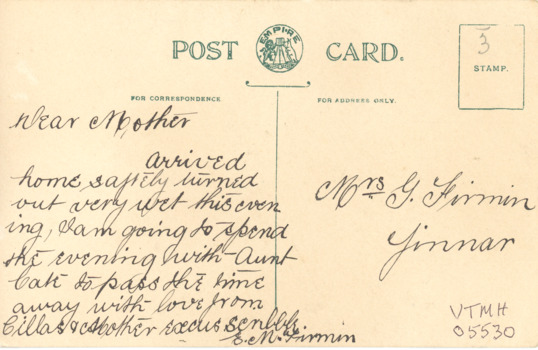 POST CARD.
EMPIRE
3
STAMP.
FOR CORRESPONDENCE
FOR ADDRESS ONLY.
Dear Mother
Arrived
home saftely turned
out very wet this even
ing, I am going to spend
the evening with Aunt
Cate to pass the time
away with love from
Cillas & Mother excus scribble
E. M. Firmin
Mrs G. Firmin
Yinnar
VTMH
05530